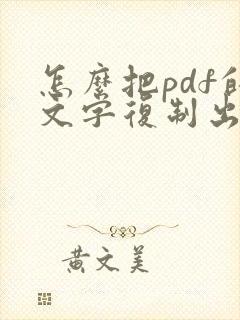 怎麼把pdf的
文字復制出
黃文美